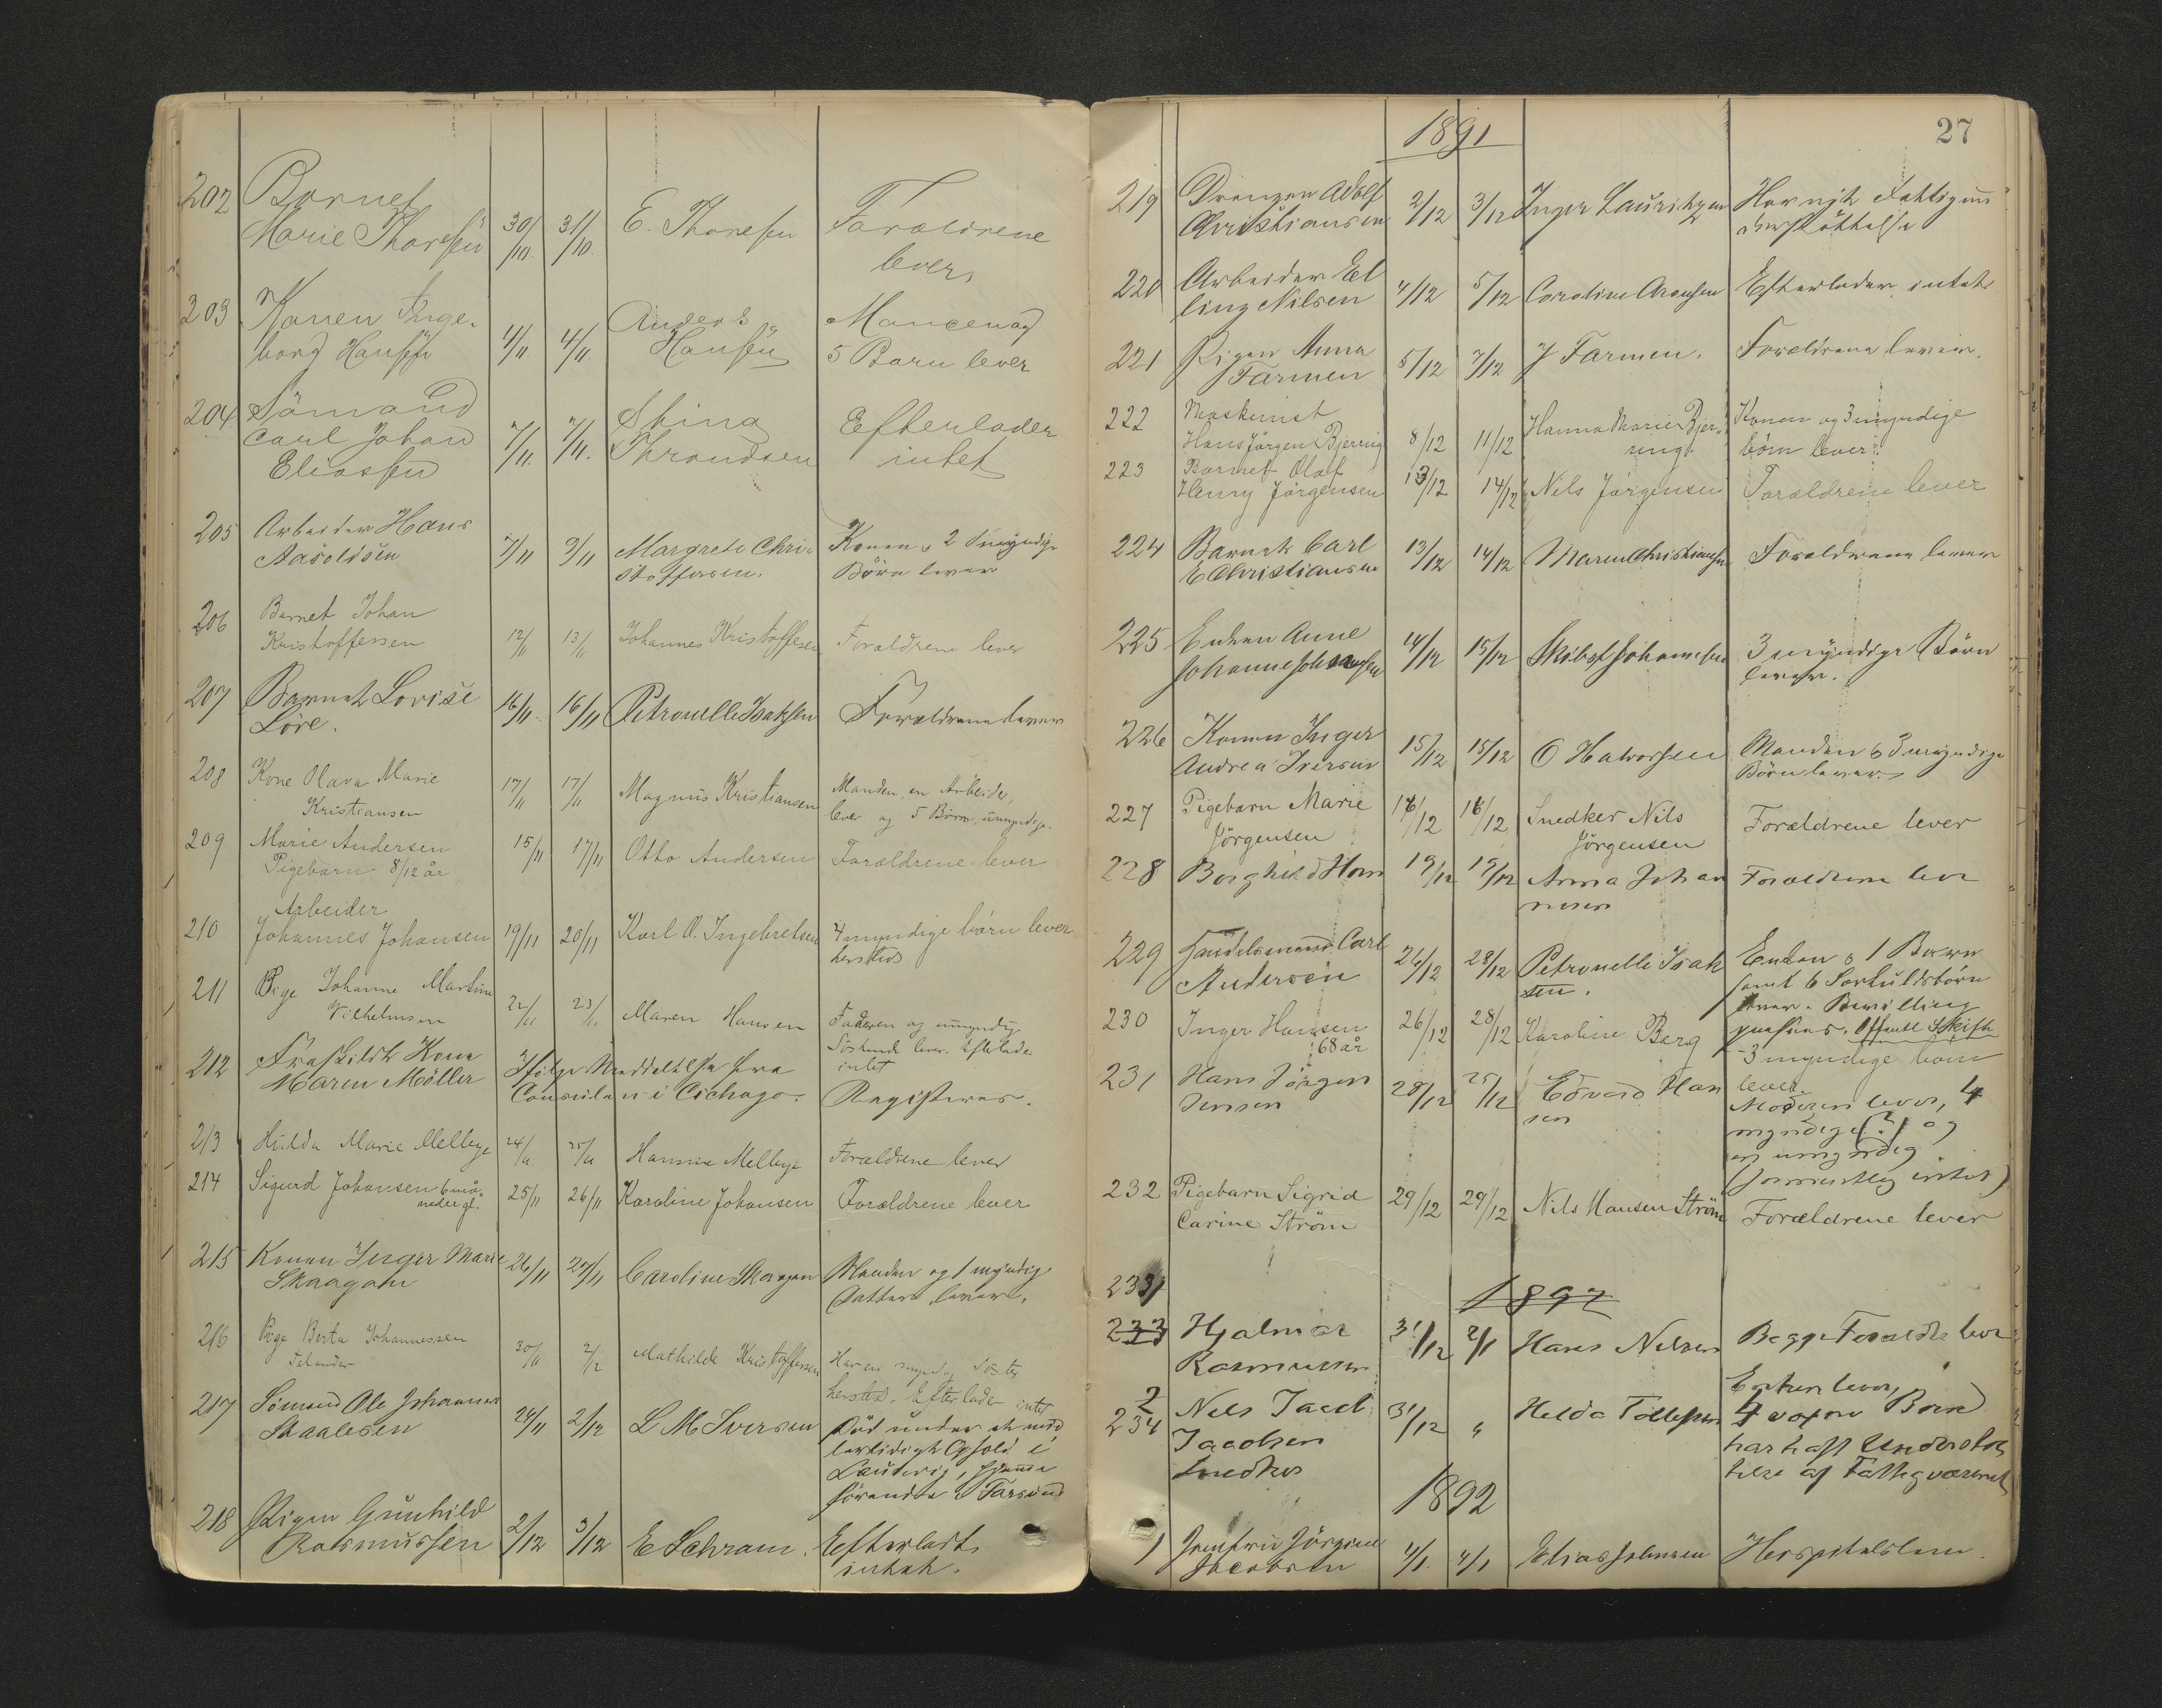 202 Barnet
Marie Thoresen 30/10 31/10 E. Thoresen Forældrene
lever
203 Konen Inge-
borg Hansen 4/11 4/11 Anders Hansen Manden og
5 Børn lever
204 Sömand
Carl Johan
Eliassen 7/11 7/11 Stina Throndsen Efterlader
intet
205 Arbeider Hans
Aasoldsen 7/11 9/11 Margrete Chri-
stoffersen. Konen o 2 Umyndige
Börn lever
206 Barnet Johan
Kristoffessen 12/11 13/11 Johannes Kristoffesen Forældrene lever
207 Barnet Lovise
Löve. 16/11 16/11 Petronelle Isaksen Forældrene lever
208 Kone Olava Marie
Kristiansen 17/11 17/11 Magnus Kristiansen Manden, en Arbeider,
lever og 5 Börn, umyndige.
209 Marie Andersen
Pigebarn 8/12 år 15/11 17/11 Otto Andersen Forældrene lever
210 Arbeider
Johannes Johansen 19/11 20/11 Karl O. Ingebretsen 4 myndige børn lever
hersteds
211 Pige Johanne Martine
Vilhelmsen 22/11 23/11 Maren Hansen Faderen og umyndige
Söskende lever. Efterlader
intet
212 Fraskildt Kone
Maren Möller Ifölge Meddelelse fra
Consulen i Cichago. Registreres.
213 Hilda Marie Melbye 24/11 25/11 Hannine Melbye Forældrene lever
214 Sigurd Johansen 6 må-
neder gl. 25/11 26/11 Karoline Johansen Forældrene lever
215 Konen Inger Marie
Skaagan 26/11 28/11 Caroline Skaagan Manden og 1 myndig
Datter lever.
216 Pige Berta Johannessen
30/11 2/12 Mathilde Kristoffersen Har en myndig Søster
hersted. Efterlader intet
217 Sömand Ole Johannes
Skaalesen 24/11 2/12 L M Iversen Död under et mid
lertidigt Ophold i
Laurvig, hjemme
hörende i Farsund
218 Pigen Gunhild
Rasmussen 2/12 3/12 E Schram. Efterladt
intet.
27
1891
219 Drengen Adolf
Christiansen 2/12 3/12 Inger Lauritzen Har nydt Fattigun
derstöttelse
220 Arbeider El
ling Nilsen 4/12 5/12 Caroline Aronsen Efterlader intet
221 Pigen Anna
Farmen 5/12 7/12 J Farmen. Forældrene lever.
222 Maskinist
Hans Jörgen Bjerring 8/12 11/12 Hanna Marie Bjer-
ring. Konen og 3 myndige
börn lever
223 Barnet Olaf
Henry Jörgensen 13/12 14/12 Nils Jørgensen Forældrene lever
224 Barnet Carl
E Christiansen 13/12 14/12 Maren Christiansen Forældrene lever
225 Enken Anne
Johanne Johannesen 14/12 15/12 Skibst Johannesen 3 myndige Börn
lever.
226 Konen Inger
Andrea Iversen 15/12 15/12 O Halvorsen Manden o 3 umyndige
Börn lever
227 Pigebarn Marie
Jörgensen 16/12 16/12 Snedker Nils
Jörgensen Forældrene lever
228 Borghild Horn 19/12 19/12 Anna Johan
nesen Forældrene lever
229 Handelsmand Carl
Andersen 26/12 28/12 Petronelle Isak
sen. Enken o 1 Barn
samt 6 Særkuldsbörn
lever. Bevilling
Offentl Skifte
230 Inger Hansen
68 år 26/12 28/12 Karoline Berg 3 myndige børn
lever.
231 Hans Jörgen
Jensen 28/12 29/12 Edvard Han
sen Moderen lever, 4
myndige (?) og
en umyndig
(formentlig intet)
232 Pigebarn Sigrid
Carine Ström 29/12 29/12 Nils Hansen Ström Forældrene lever
233
1892
233 Hjalmar
Rasmussen 31/12 2/1 Hans Nilsen Begge Forældre lever
2
234 Nils Jacob
Jacobsen
Snedker 31/12 " Helda Tollefsen Enken lever,
4 voxne Børn
har haft Understöt
telse af Fattigvæsenet
1892
1 Jomfru Jörgine
Jacobsen 4/1 4/1 Elias Johnsen Hospitalslem